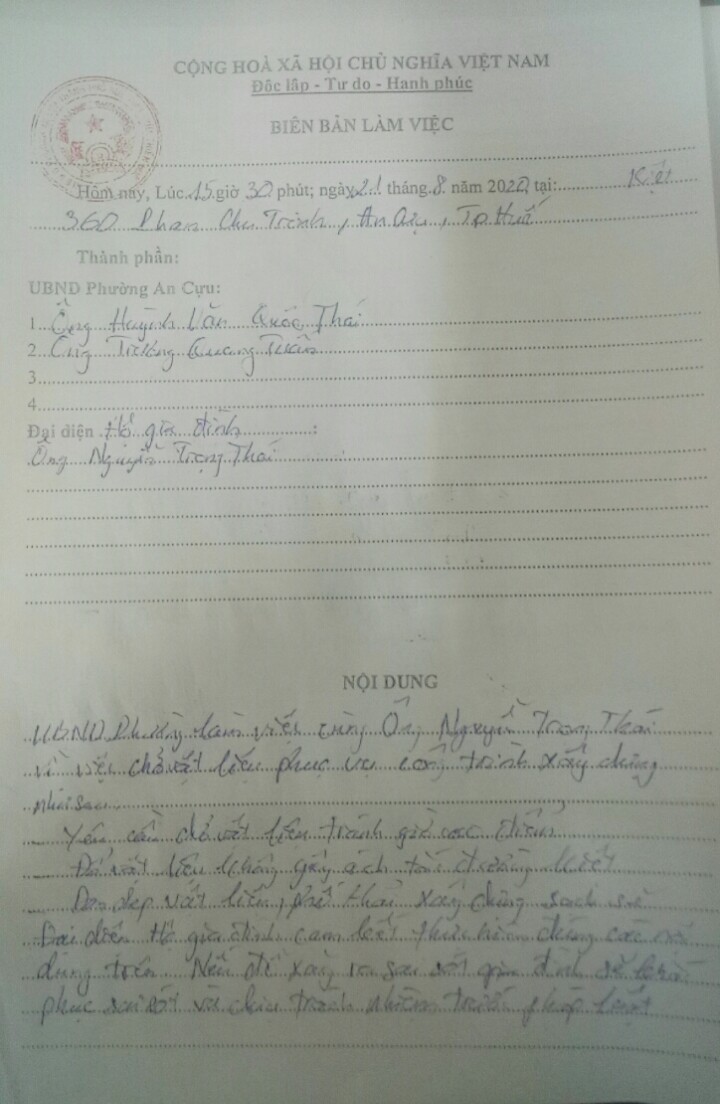 CỘNG HOÀ XÃ HỘI CHỦ NGHĨA VIỆT NAM
Độc lập - Tự do - Hạnh phúc
BIÊN BẢN LÀM VIỆC
Hôm nay, Lúc 15 giờ 30 phút; ngày 21 tháng 8 năm 2020 tại: Kiệt
360 Phan Chu Trinh, An Cựu, Tp Huế
Thành phần:
UBND Phường An Cựu:
1. Ông Huỳnh Văn Quốc Thái
2. Ông Trương Quang Tuấn
3.
4.
Đại diện Hộ gia đình:
Ông Nguyễn Trọng Thái
NỘI DUNG
UBND Phường làm việc cùng Ông Nguyễn Trọng Thái
về việc chở vật liệu phục vụ công trình xây dựng
như sau
Yêu cầu chở vật liệu tránh giờ cao điểm
Đổ vật liệu không gây ách tắc đường kiệt
Dọn dẹp vật liệu, phế thải xây dựng sạch sẽ
Đại diện Hộ gia đình cam kết thực hiện đúng các nội
dung trên. Nếu để xảy ra sai sót gia đình sẽ khắc
phục sai sót và chịu trách nhiệm trước pháp luật